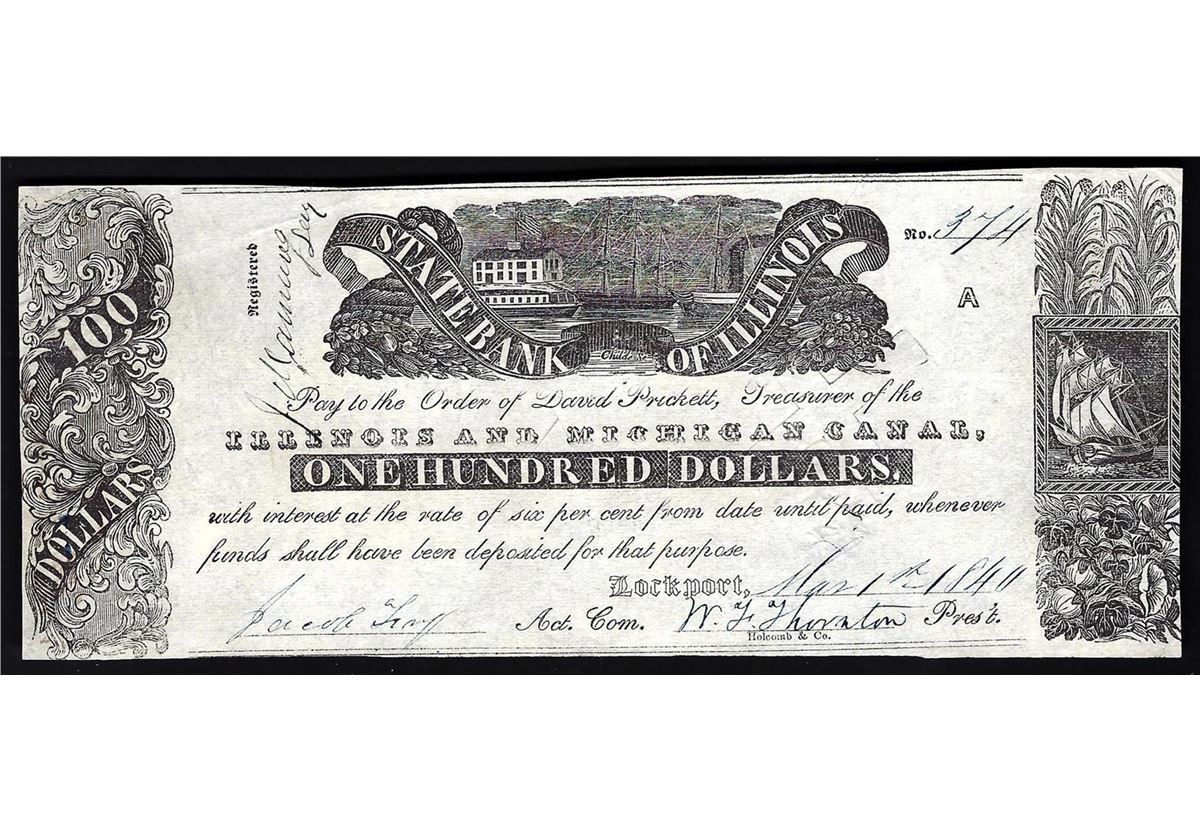 100
DOLLARS
Registered
STATE BANK OF ILLINOIS
No. 374
A
Childs Sc
Pay to the Order of David Prickett, Treasurer of the
ILLINOIS AND MICHIGAN CANAL,
ONE HUNDRED DOLLARS,
with interest at the rate of six per cent from date until paid, whenever
funds shall have been deposited for that purpose.
Lockport, Mar 1st 1840
Jacob Fry Act. Com. W. F. Thornton Prest.
Holcomb & Co.